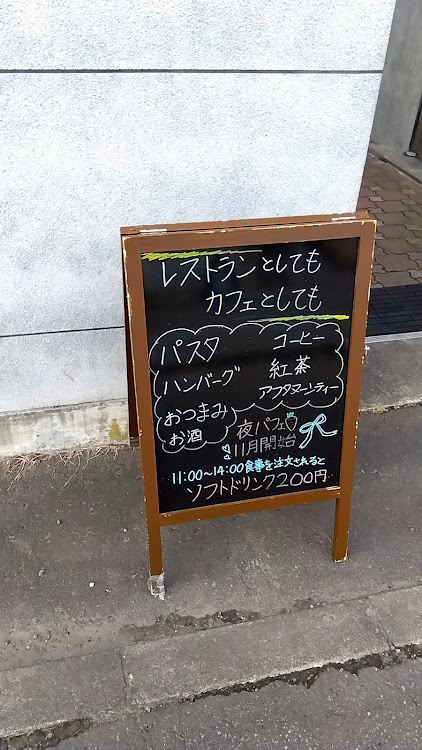 レストランとしても
カフェとしても
パスタ
ハンバーグ
おつまみ
お酒
コーヒー
紅茶
アフタヌーンティー
夜パフェ
11月開始
11:00〜14:00食事を注文されると
ソフトドリンク200円